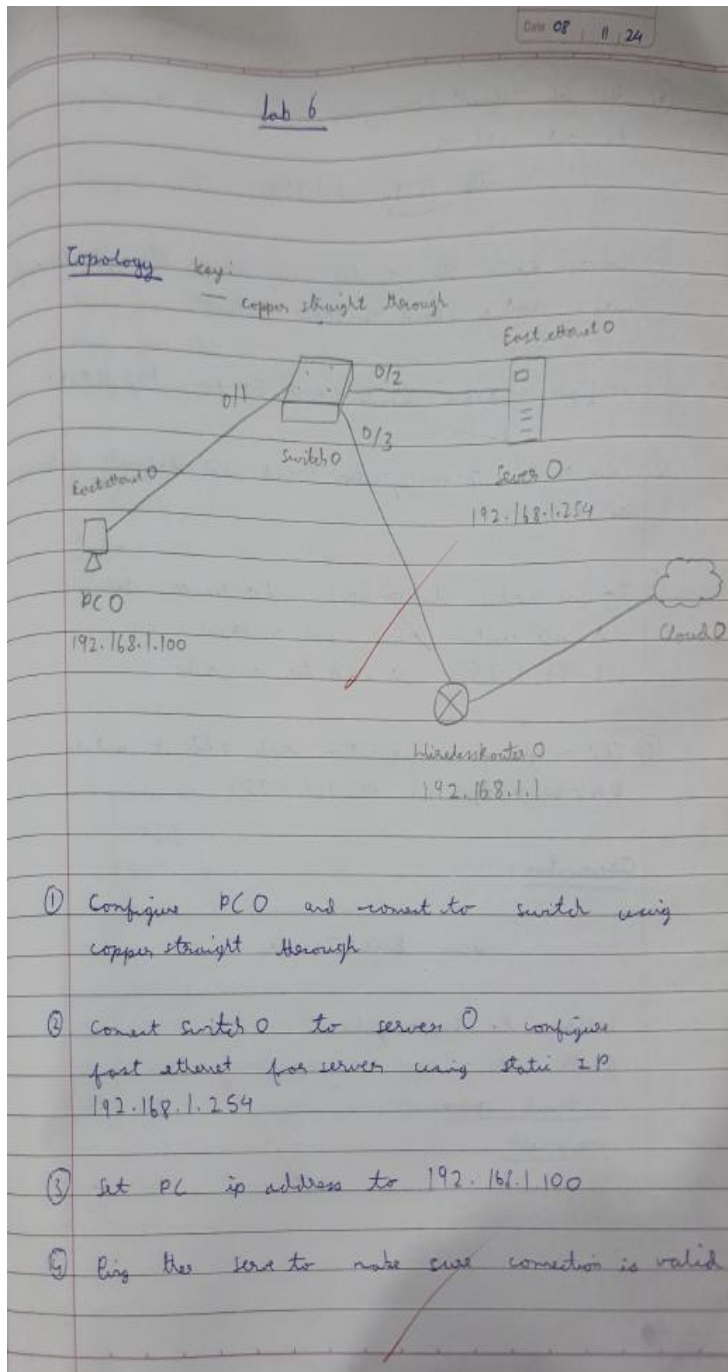 Date 08 11 24
Lab 6
Topology key:
— copper straight through
East ethernet 0
0/1
0/2
0/3
Switch 0
East ethernet 0
Sever 0
192.168.1.254
PC 0
192.168.1.100
Cloud 0
WirelessRouter 0
192.168.1.1
① Configure PC 0 and connect to switch using
copper straight through
② Connect switch 0 to server 0. configure
fast ethernet for server using static IP
192.168.1.254
③ Set PC ip address to 192.168.1.100
④ Ping the serve to make sure connection is valid